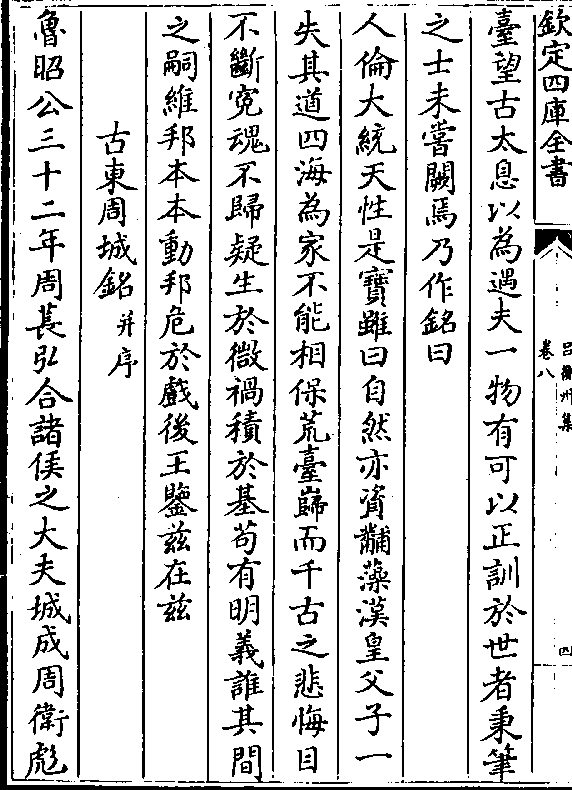 欽定四庫全書
吕衡州集
卷八
四
臺望古太息以為遇夫一物有可以正訓於世者秉筆
之士未嘗闕焉乃作銘曰
人倫大統天性是寶雖曰自然亦資黼藻漢皇父子一
失其道四海為家不能相保荒臺巋而千古之悲悔目
不斷寃魂不歸疑生於微禍積於基苟有明義誰其間
之嗣維邦本本動邦危於戲後王鑒兹在兹
古東周城銘并序
魯昭公三十二年周萇弘合諸侯之大夫城成周衛彪